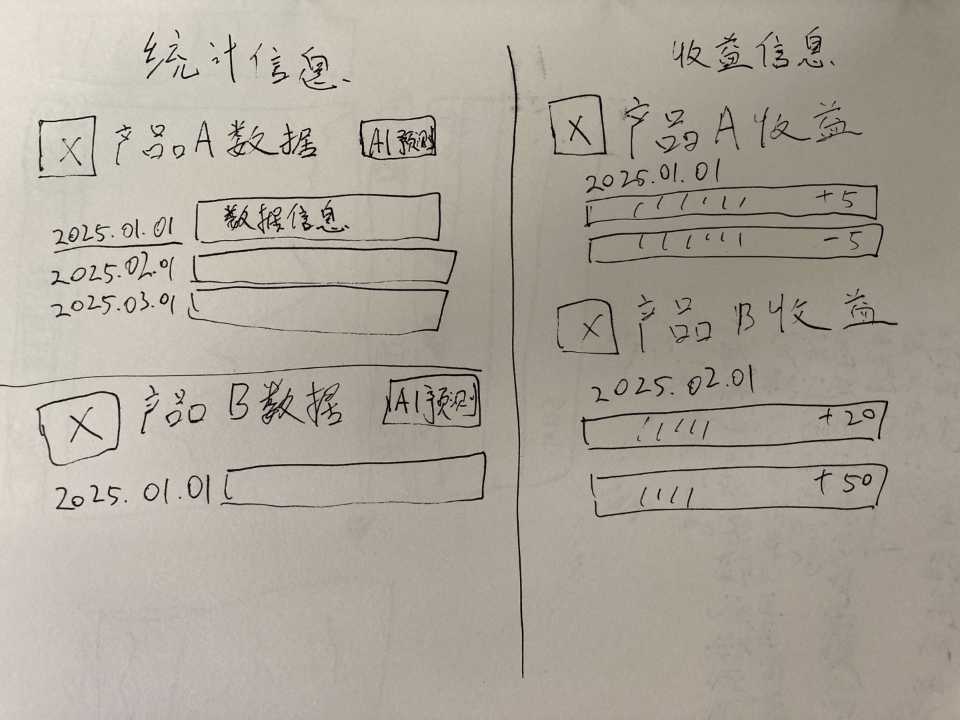 统计信息
X 产品A数据 AI预测
2025.01.01 数据信息
2025.02.01
2025.03.01
X 产品B数据 AI预测
2025.01.01
收益信息
X 产品A收益
2025.01.01
+5
-5
X 产品B收益
2025.02.01
+20
+50